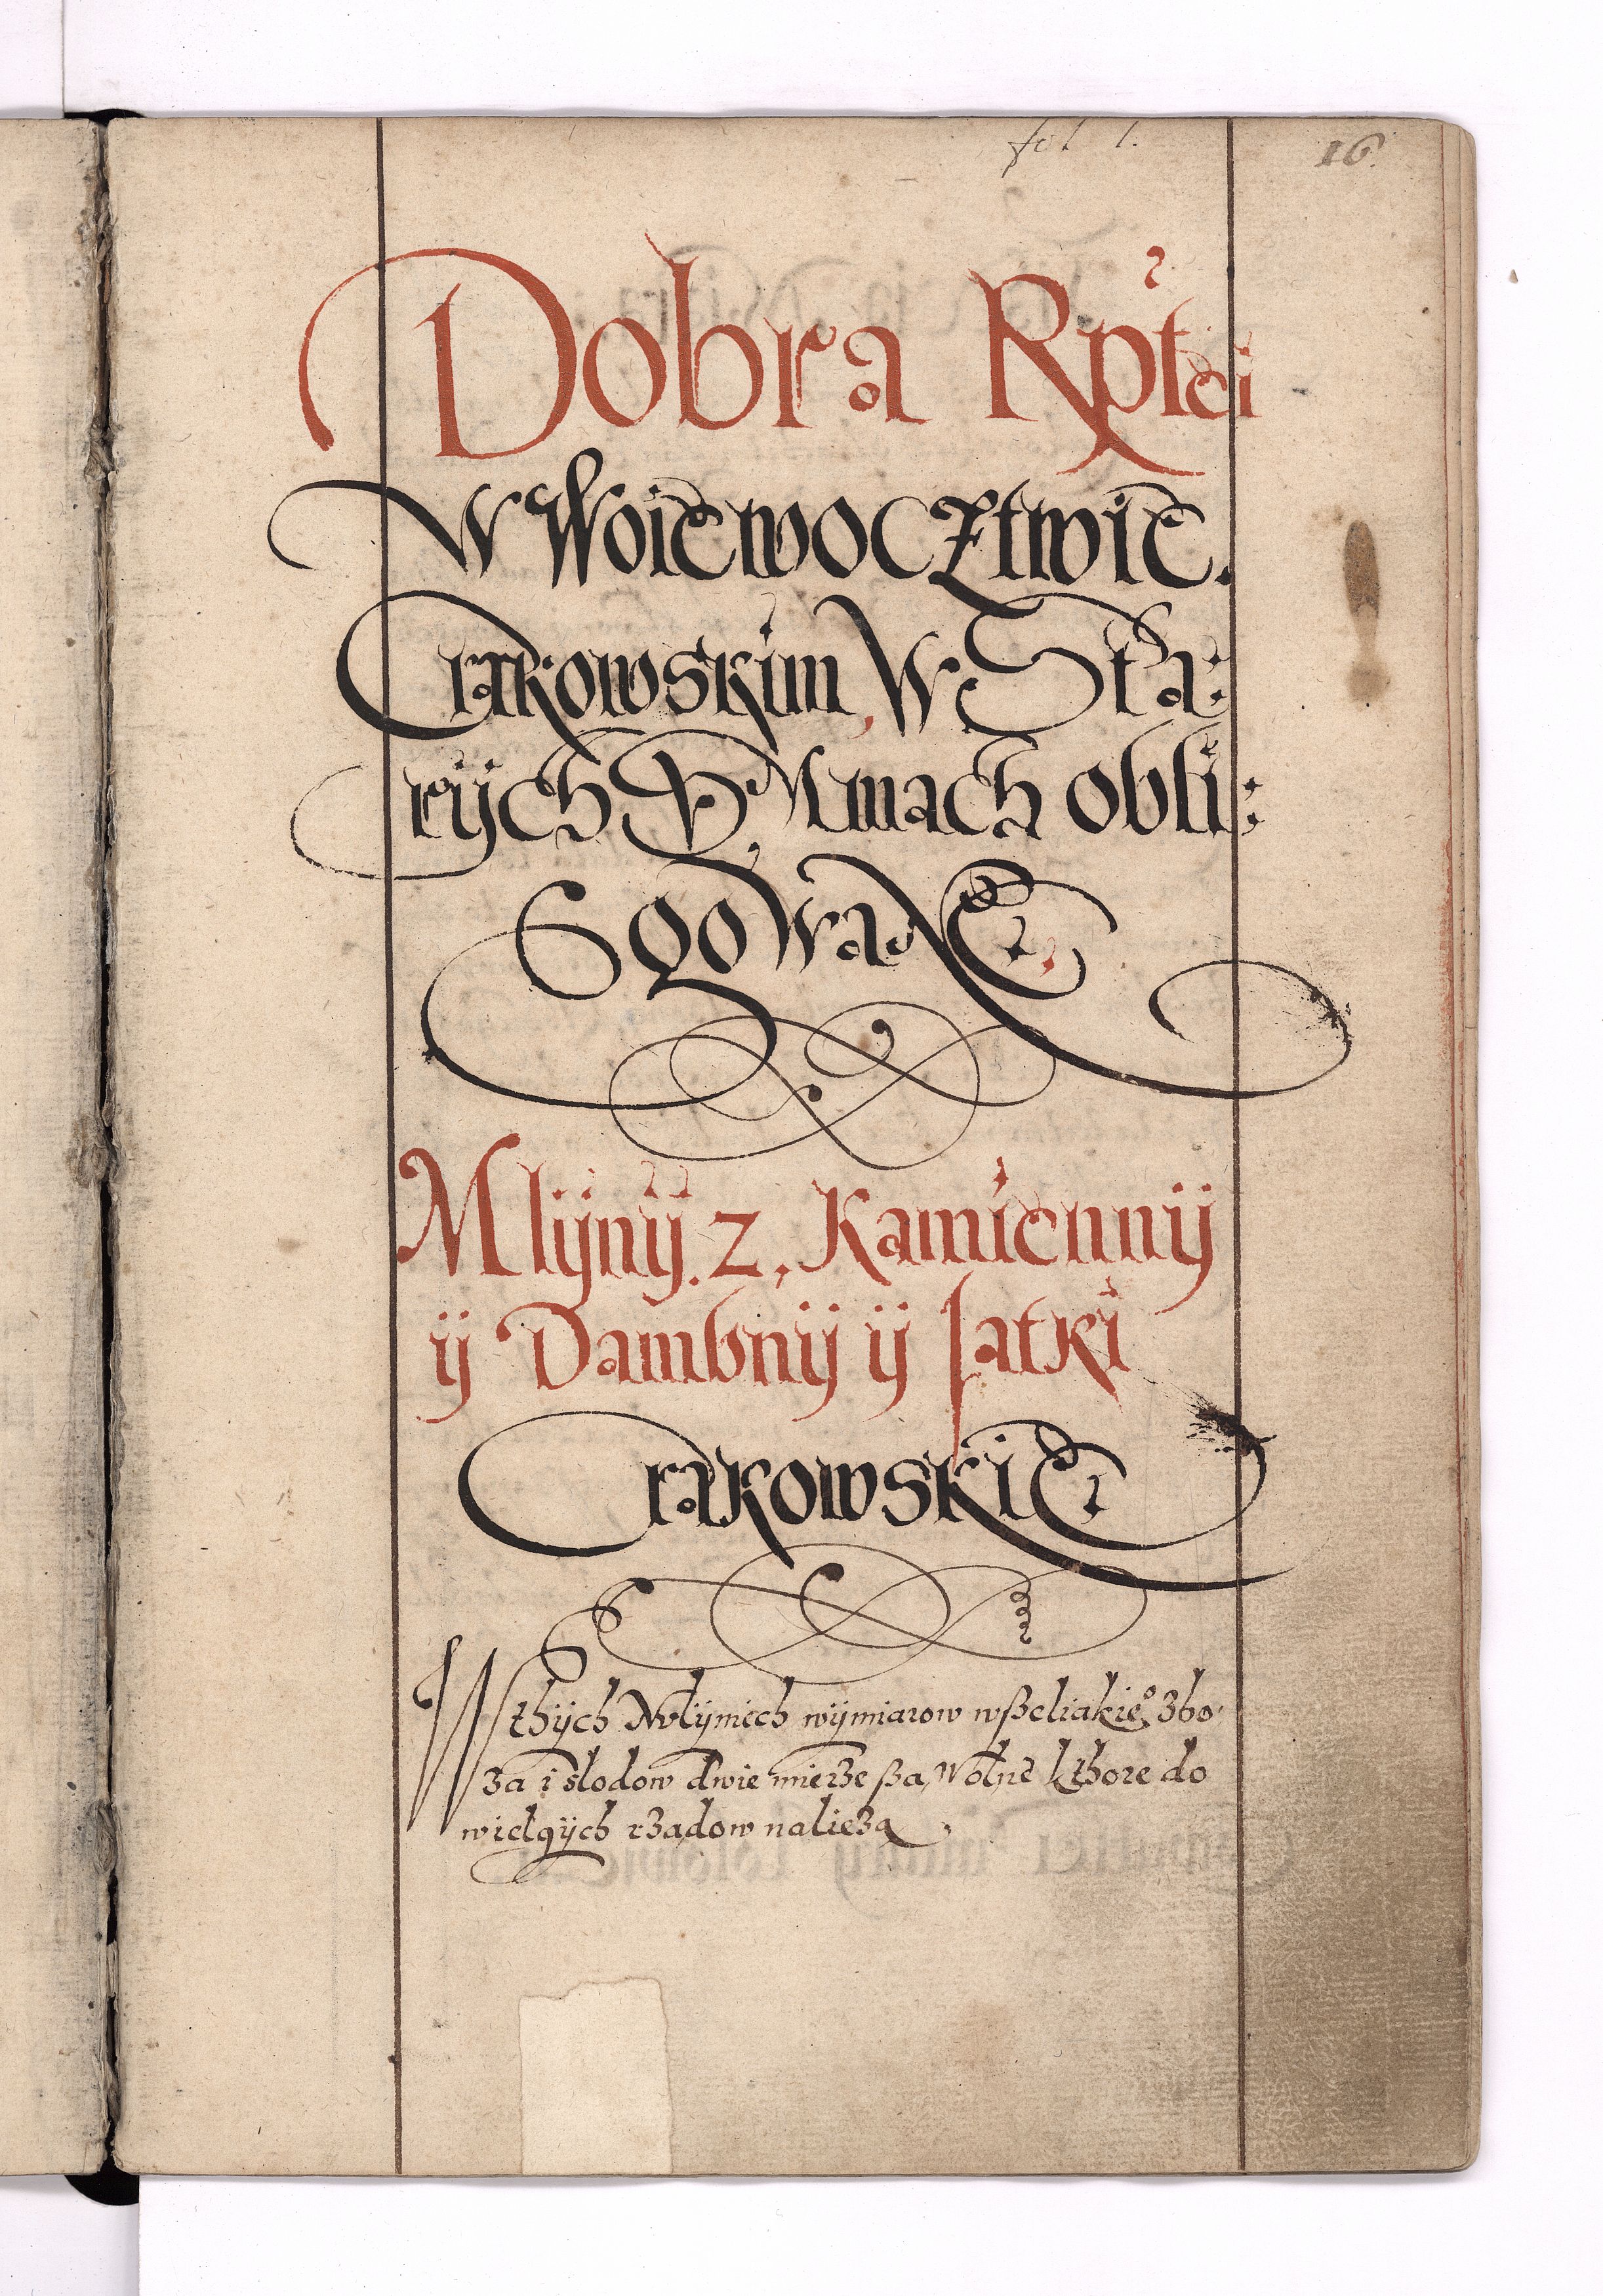 fol 1.
16.
Dobra Rptci
W Woiewocztwie.
Crakowskim, W Sta:
rÿch Summach obli:
gowane
Mlÿnÿ. z, Kamiennÿ
ÿ Dambnÿ ÿ Jatki
Crakowskie
W thÿch Mlÿniech wÿmiarow wßeliakieº zbo
za i slodow dwie mierze ßa, wolne kthore do
wielgÿch rzadow nalieza